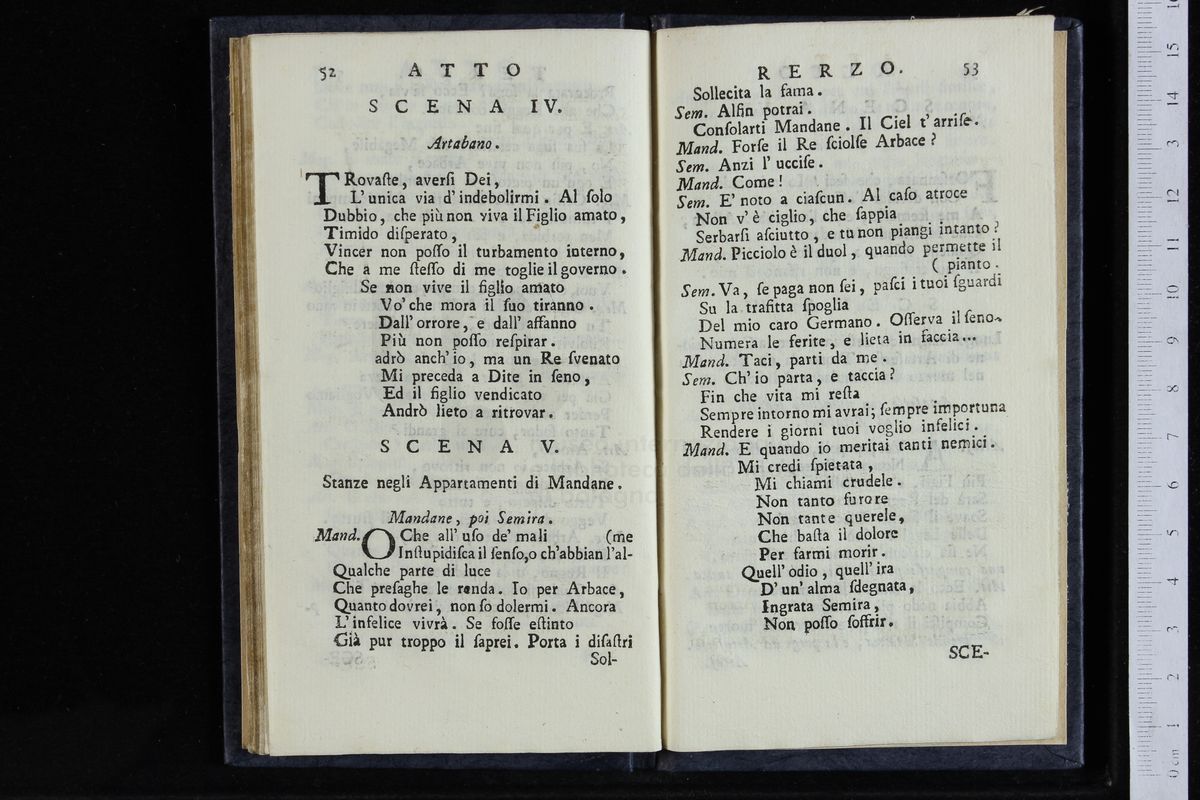 52 ATTO
SCENA IV.
Artabano.
TRovaſte, averſi Dei,
L' unica via d' indebolirmi. Al ſolo
Dubbio, che più non viva il Figlio amato,
Timido diſperato,
Vincer non poſſo il turbamento interno,
Che a me ſteſſo di me toglie il governo.
Se non vive il figlio amato
Vo' che mora il ſuo tiranno.
Dall' orrore, e dall' affanno
Più non poſſo reſpirar.
adrò anch' io, ma un Re ſvenato
Mi preceda a Dite in ſeno,
Ed il figlio vendicato
Andrò lieto a ritrovar.
SCENA V.
Stanze negli Appartamenti di Mandane.
Mandane, poi Semira.
Mand. OChe all' uſo de' mali (me
Inſtupidiſca il ſenſo, o ch'abbian l'al-
Qualche parte di luce
Che preſaghe le renda. Io per Arbace,
Quanto dovrei, non ſo dolermi. Ancora
L' infelice vivrà. Se foſſe eſtinto
Già pur troppo il ſaprei. Porta i diſaſtri
Sol-
RERZO. 53
Sollecita la fama.
Sem. Alfin potrai.
Conſolarti Mandane. Il Ciel t' arriſe.
Mand. Forſe il Re ſciolſe Arbace?
Sem. Anzi l' ucciſe.
Mand. Come!
Sem. E' noto a ciaſcun. Al caſo atroce
Non v' è ciglio, che ſappia
Serbarſi aſciutto, e tu non piangi intanto?
Mand. Picciolo è il duol, quando permette il
( pianto.
Sem. Va, ſe paga non ſei, paſci i tuoi ſguardi
Su la trafitta ſpoglia
Del mio caro Germano. Oſſerva il ſeno,
Numera le ferite, e lieta in faccia...
Mand. Taci, parti da me.
Sem. Ch' io parta, e taccia?
Fin che vita mi reſta
Sempre intorno mi avrai; ſempre importuna
Rendere i giorni tuoi voglio infelici.
Mand. E quando io meritai tanti nemici.
Mi credi ſpietata,
Mi chiami crudele.
Non tanto furore
Non tante querele,
Che baſta il dolore
Per farmi morir.
Quell' odio, quell' ira
D' un' alma ſdegnata,
Ingrata Semira,
Non poſſo ſoffrir.
SCE-
0 cm 1 2 3 4 5 6 7 8 9 10 11 12 13 14 15